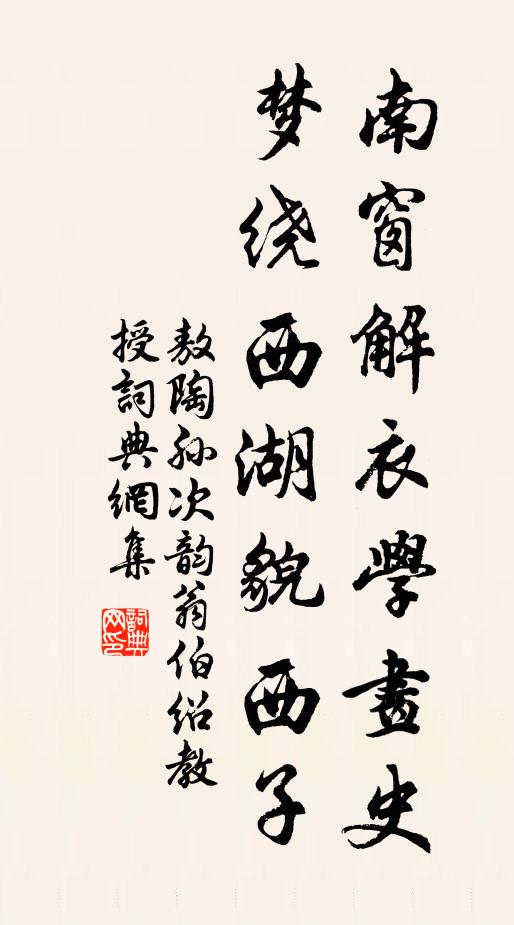 南窗解衣學畫史
梦绕西湖貌西子
敖陶孙次韵翁伯绍教
授詞典網集
詞典網印